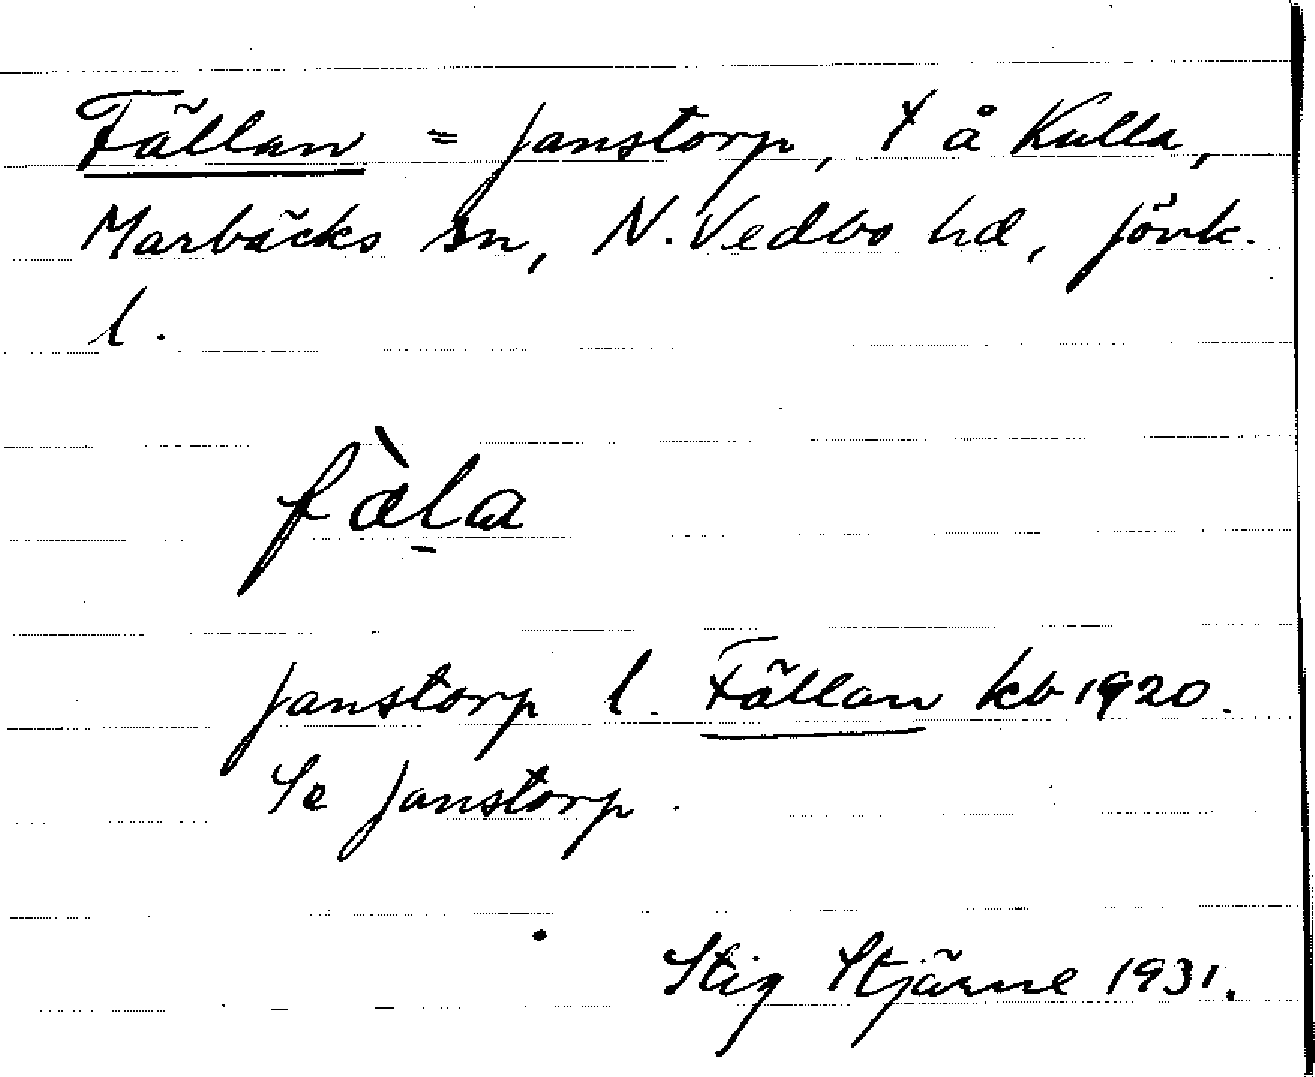 Fällan = Janstorp, t å Kulla,
Marbäcks sn, N. Vedbo hd, Jönk.
l.
fæ̀la
Janstorp l. Fällan kb 1920.
Se Janstorp.
Stig Stjärne 1931.